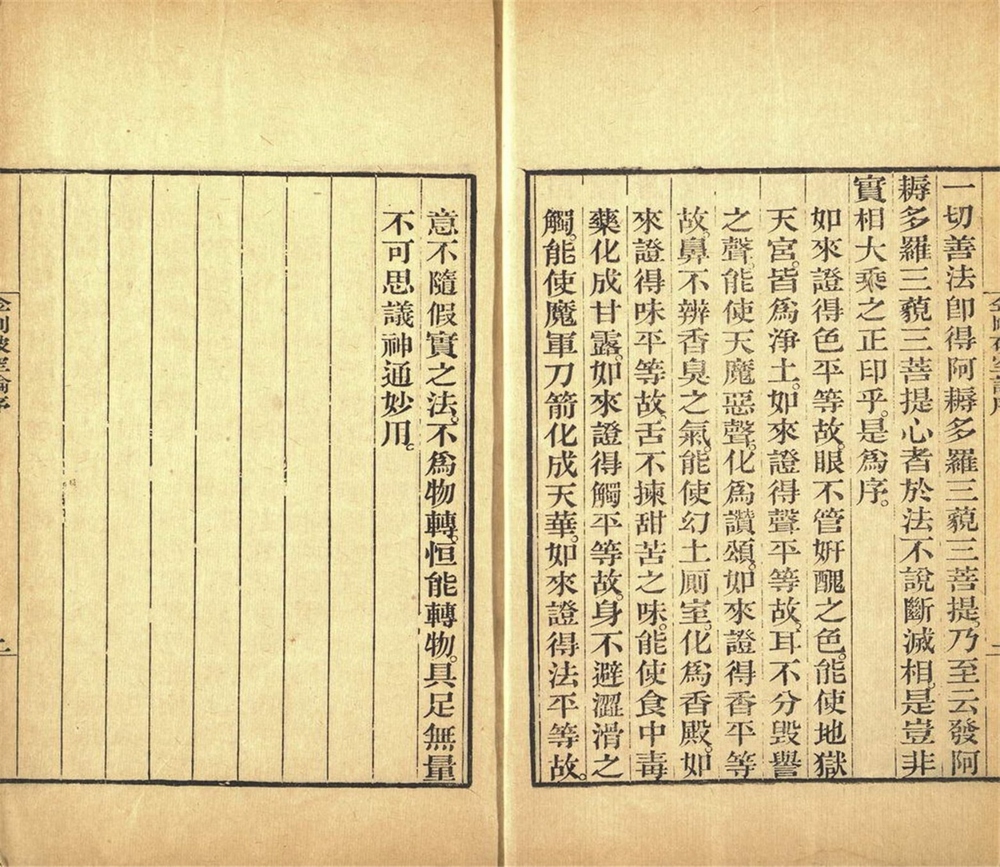 一切善法卽得阿耨多羅三藐三菩提。乃至云發阿
耨多羅三藐三菩提心者於法不說斷滅相。是豈非
實相大乘之正印乎。是爲序。
如來證得色平等故。眼不管姸醜之色。能使地獄
天宮。皆爲淨土。如來證得聲平等故。耳不分毀譽
之聲。能使天魔惡聲。化爲讚頌。如來證得香平等
故。鼻不辨香臭之氣。能使幻土厠室。化爲香殿。如
來證得味平等故。舌不揀甜苦之味。能使食中毒
藥化成甘露。如來證得觸平等故。身不避澀滑之
觸。能使魔軍刀箭化成天華。如來證得法平等故。
意不隨假實之法。不爲物轉。恒能轉物。具足無量
不可思議神通妙用。